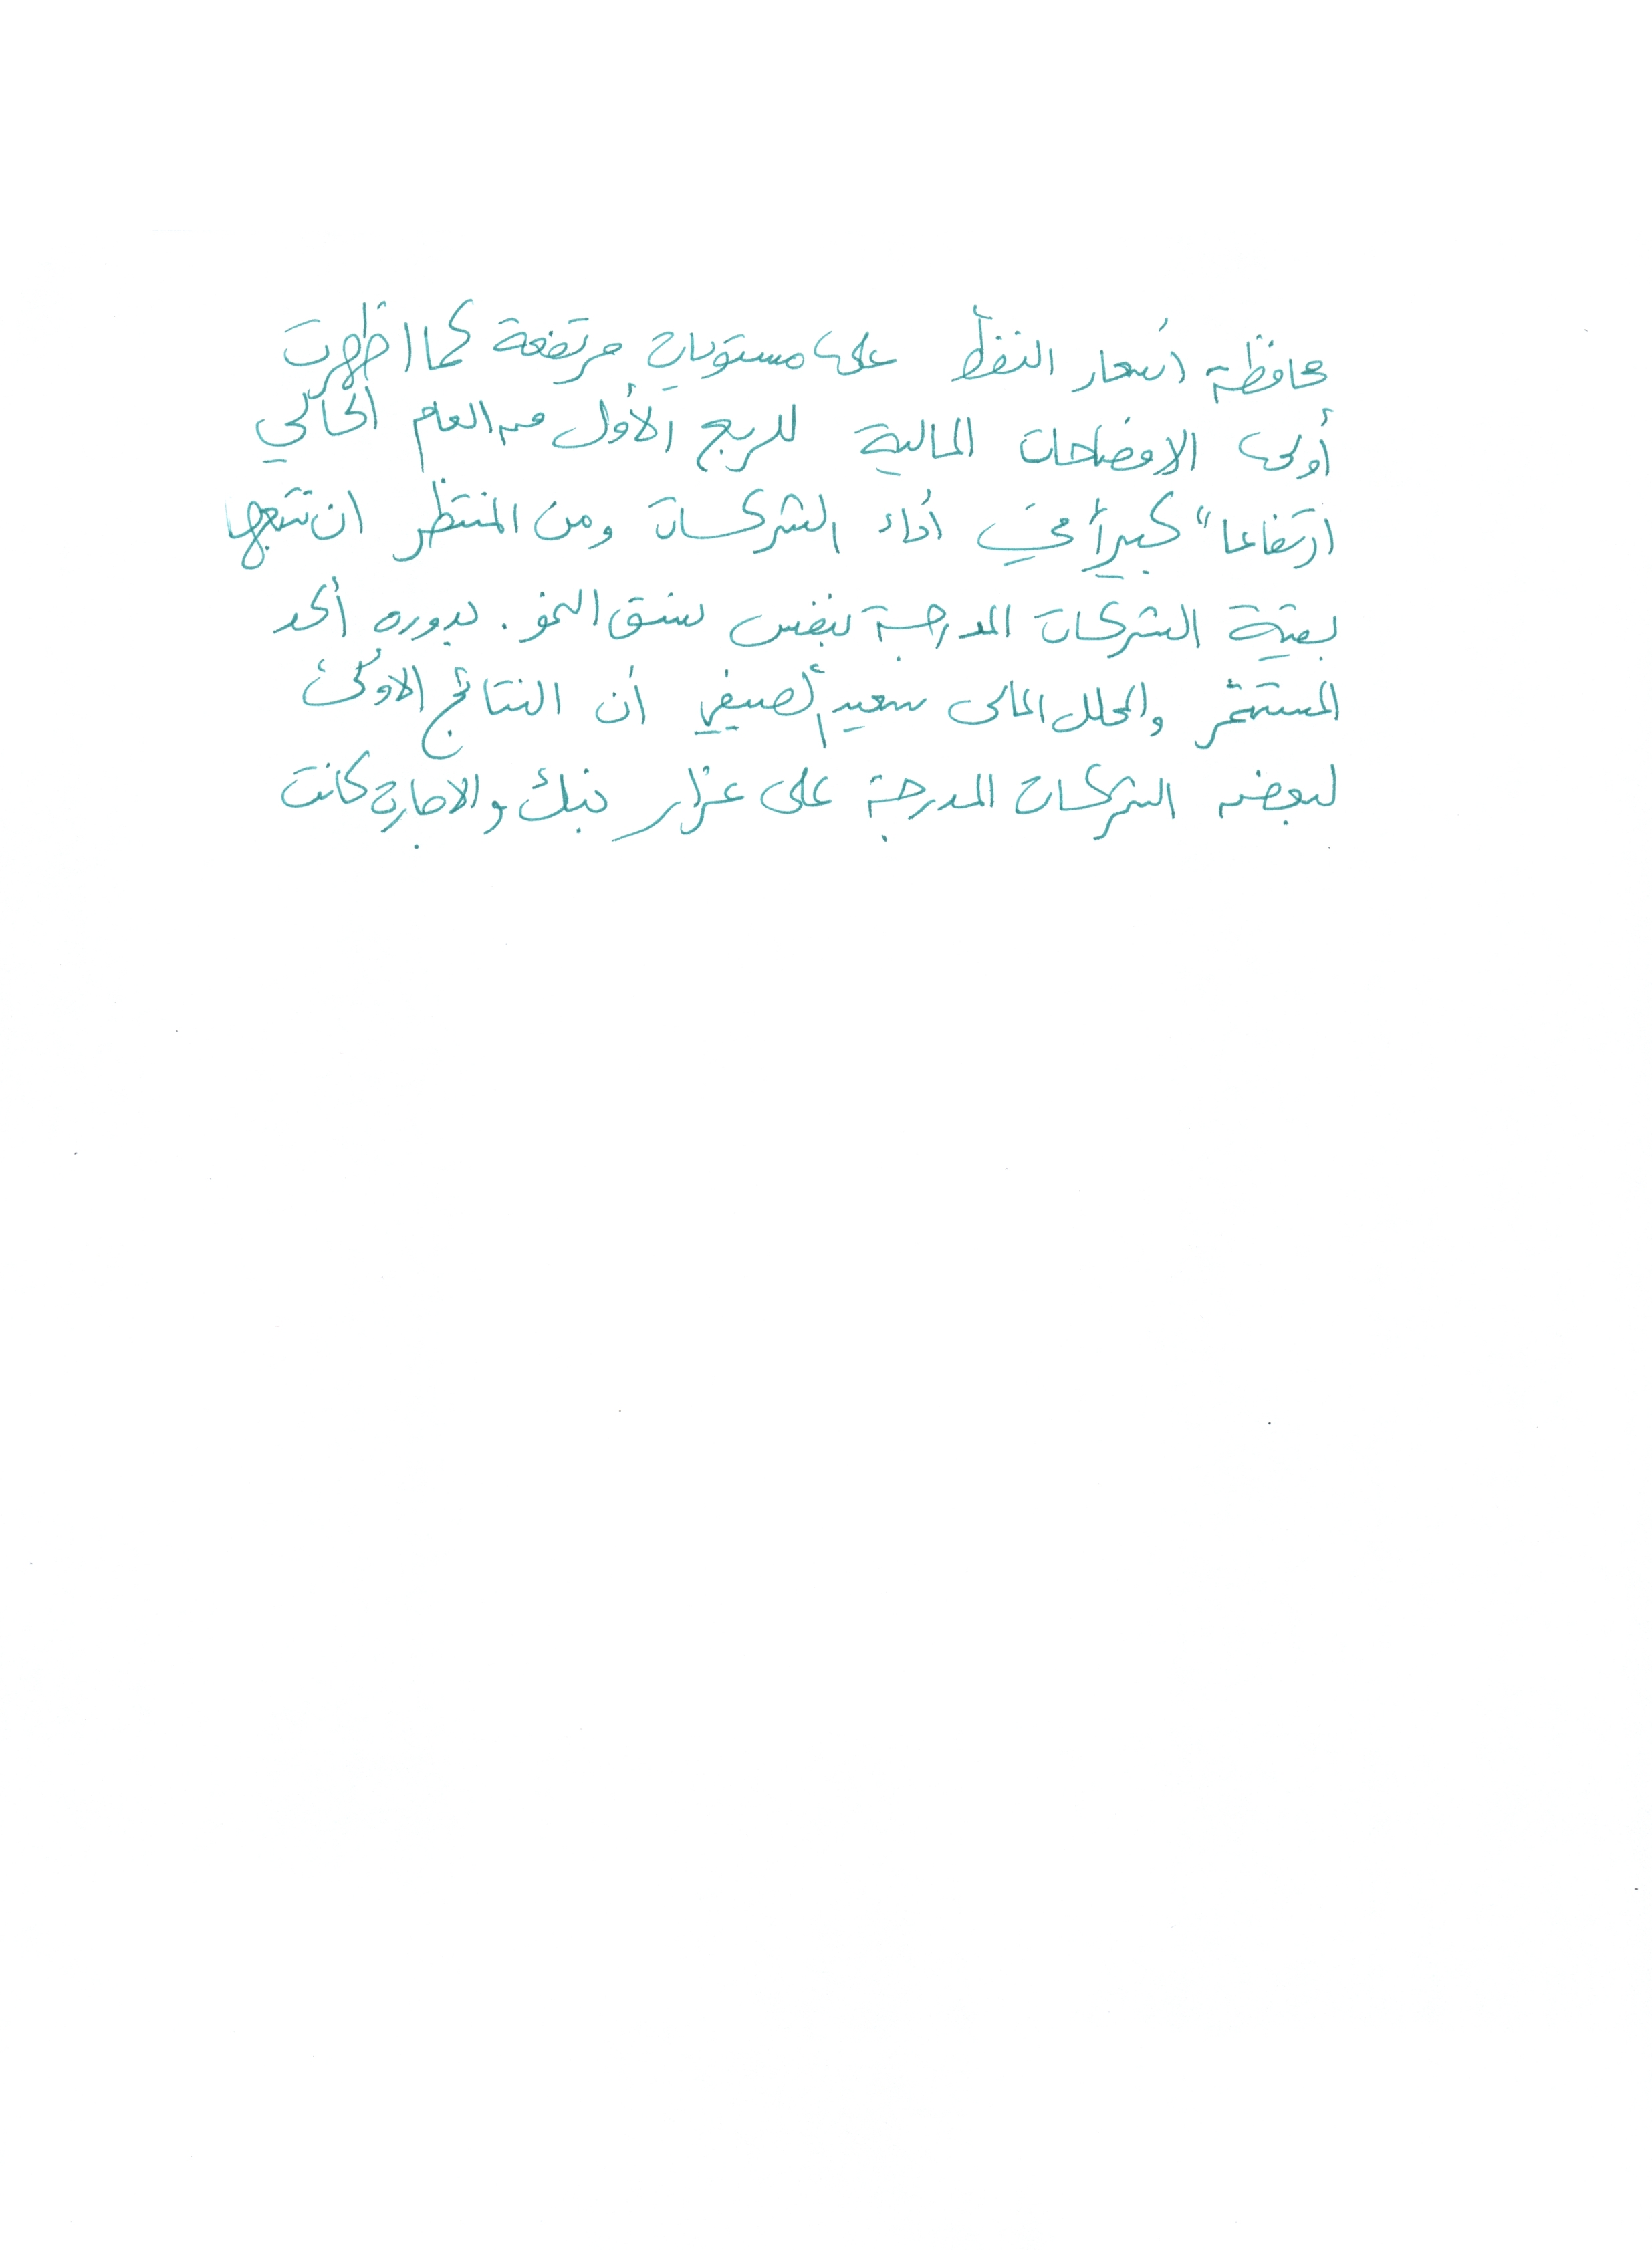 محافظة أسعار النفط على مستويات مرتفعة كما اظهرت
أولى الافصاحات المالية للربع الأول من العام الحالي
ارتفاعا" كبيرأ في أداء الشركات ومن المنتظر ان تتبعها
بقية الشركات المدرجة بنفس نسق النمو. بدوره أكد
المستثمر والمحلل المالى سعيد أن النتائج الاولى
لبعض الشركات المدرجة على غرار بنك والاجارة كانت